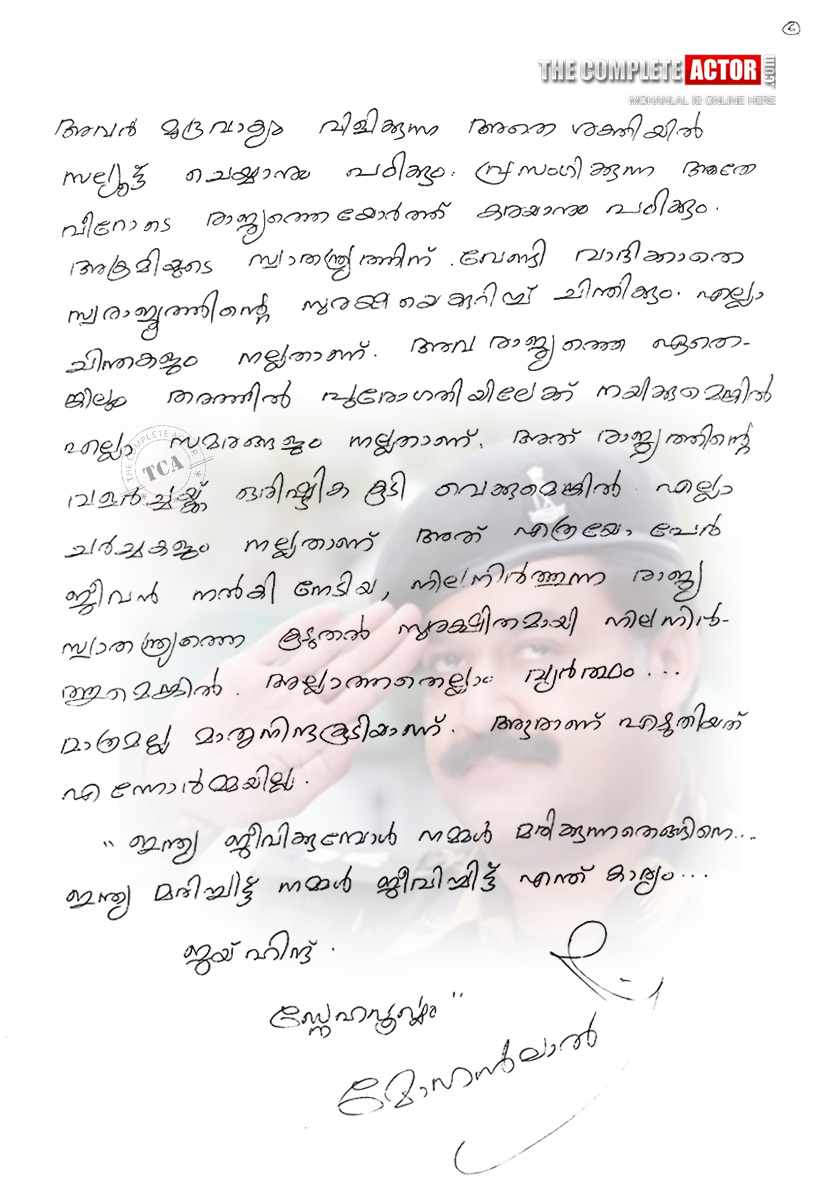 6
THE COMPLETE ACTOR .com
MOHANLAL IS ONLINE HERE
അവൻ മുദ്രാവാക്യം വിളിക്കുന്ന അതെ ശക്തിയിൽ
സല്യൂട്ട് ചെയ്യാനും പഠിക്കും. പ്രസംഗിക്കുന്ന അതേ
വീറോടെ രാജ്യത്തെയോർത്ത് കരയാനും പഠിക്കും.
അക്രമിയുടെ സ്വാതന്ത്ര്യത്തിന് വേണ്ടി വാദിക്കാതെ
സ്വരാജ്യത്തിന്റെ സുരക്ഷയെകുറിച്ച് ചിന്തിക്കും. എല്ലാ
ചിന്തകളും നല്ലതാണ്. അവ രാജ്യത്തെ ഏതെ-
ങ്കിലും തരത്തിൽ പുരോഗതിയിലേക്ക് നയിക്കുമെങ്കിൽ
എല്ലാ സമരങ്ങളും നല്ലതാണ്. അത് രാജ്യത്തിന്റെ
വളർച്ചയ്ക്ക് ഒരിഷ്ടിക കൂടി വെക്കുമെങ്കിൽ. എല്ലാ
ചർച്ചകളും നല്ലതാണ് അത് എത്രയോ പേർ
ജീവൻ നൽകി നേടിയ, നിലനിർത്തുന്ന രാജ്യ
സ്വാതന്ത്ര്യത്തെ കൂടുതൽ സുരക്ഷിതമായി നിലനിർ-
ത്തുമെങ്കിൽ. അല്ലാത്തതെല്ലാം വ്യർത്ഥം...
മാത്രമല്ല മാതൃനിന്ദകൂടിയാണ്. ആരാണ് എഴുതിയത്
എന്നോർമ്മയില്ല.
"ഇന്ത്യ ജീവിക്കുമ്പോൾ നമ്മൾ മരിക്കുന്നതെങ്ങിനെ...
ഇന്ത്യ മരിച്ചിട്ട് നമ്മൾ ജീവിച്ചിട്ട് എന്ത് കാര്യം...
ജയ് ഹിന്ദ്.
സ്നേഹപൂർവ്വം"
മോഹൻലാൽ
THE COMPLETE ACTOR
TCA